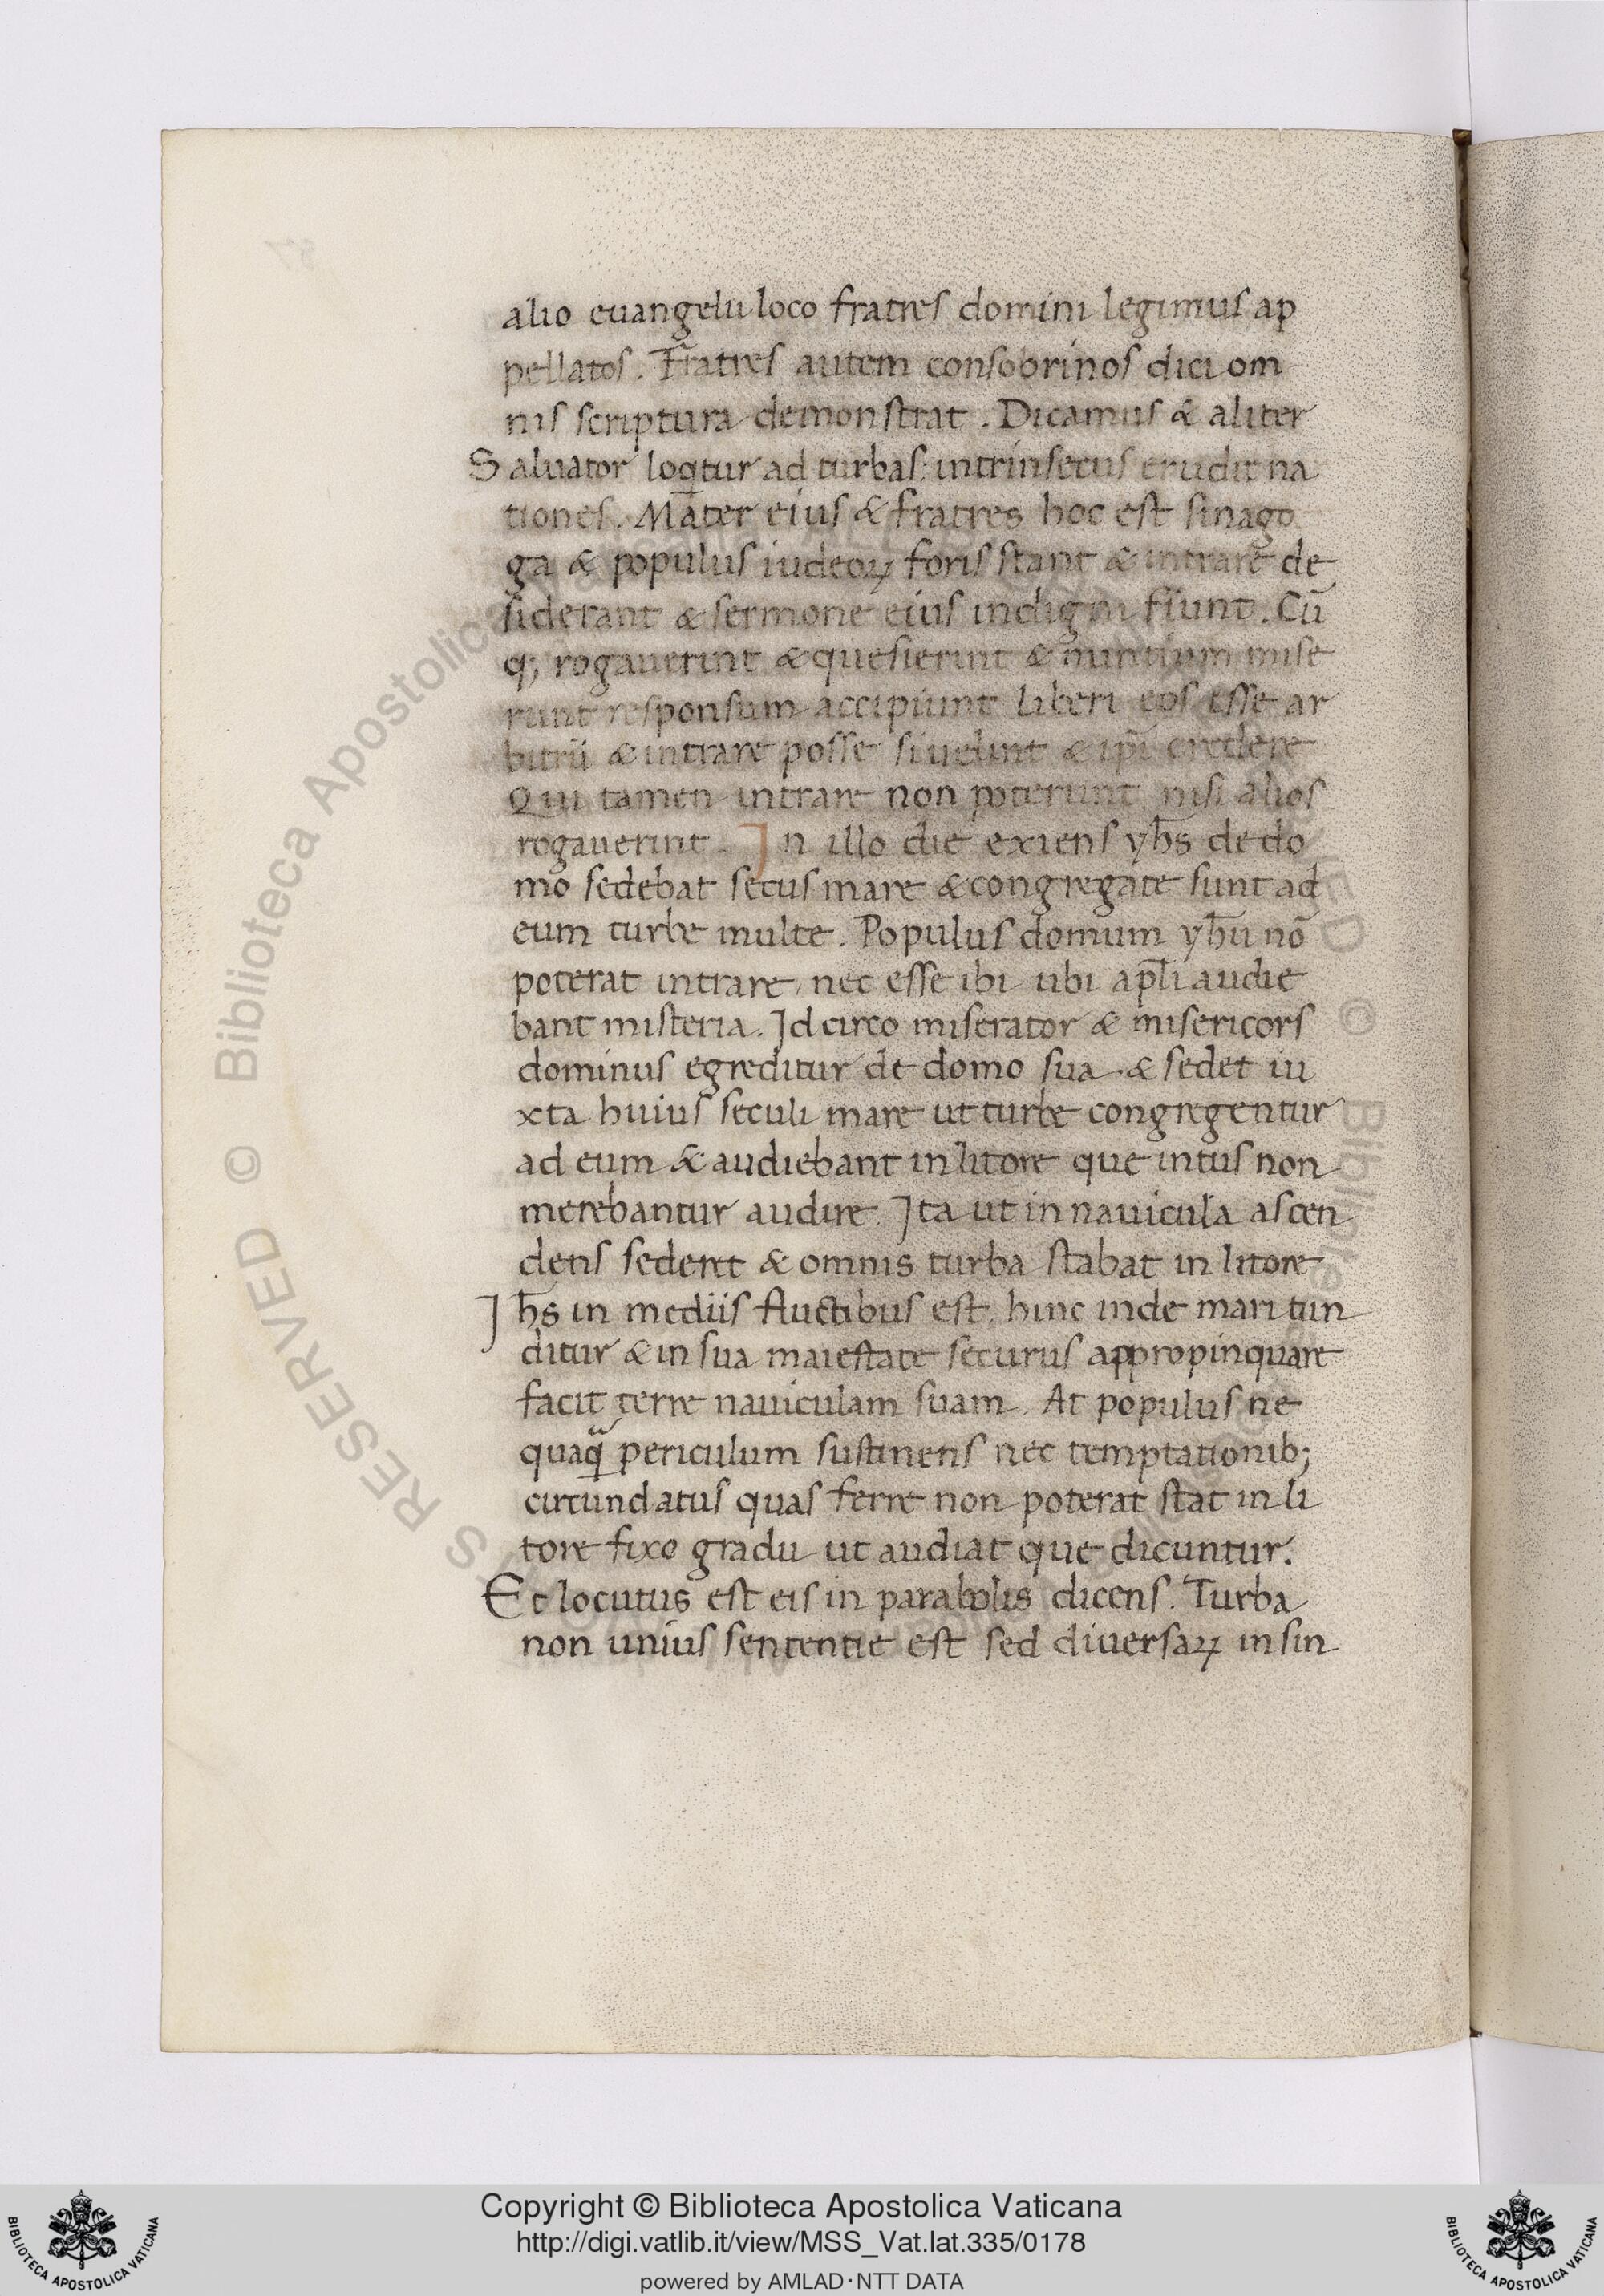 alio euangelii loco fratres domini legimus ap
pellatos. Fratres autem consobrinos dici om
nis scriptura demonstrat. Dicamus & aliter
Saluator loq̄tur ad turbas: intrinsecus erudit na
tiones. Mater eius & fratres hoc est sinago
ga & populus iudeoꝝ foris stant & intrare de
siderant & sermone eius indigni fiunt. Cū
q; rogauerint & quesierint & nuntium mise
runt responsum accipiunt liberi eos esse ar
bitrii & intrare posse si uelint & ip̄i credere
Qui tamen intrare non poterunt nisi alios
rogauerint. In illo die exiens yh̄s de do
mo sedebat secus mare & congregate sunt ad
eum turbe multe. Populus domum yh̄u nō
poterat intrare nec esse ibi ubi apl̄i audie
bant misteria. Idcirco miserator & misericors
dominus egreditur de domo sua. & sedet iu
xta huius seculi mare ut turbe congregentur
ad eum & audiebant in litore que intus non
merebantur audire. Ita ut in nauicula ascen
dens sederet & omnis turba stabat in litore
Ih̄s in mediis fluctibus est. hinc inde mari tun
ditur & in sua maiestate securus appropinquare
facit terre nauiculam suam. At populus ne
quaꝗ̃ periculum sustinens nec temptationib;
circundatus quas ferre non poterat stat in li
tore fixo gradu ut audiat que dicuntur.
Et locutus est eis in parabolis dicens. Turba
non unius sententie est sed diuersaꝝ in sin
Copyright © Biblioteca Apostolica Vaticana
http://digi.vatlib.it/view/MSS_Vat.lat.335/0178
powered by AMLAD·NTT DATA